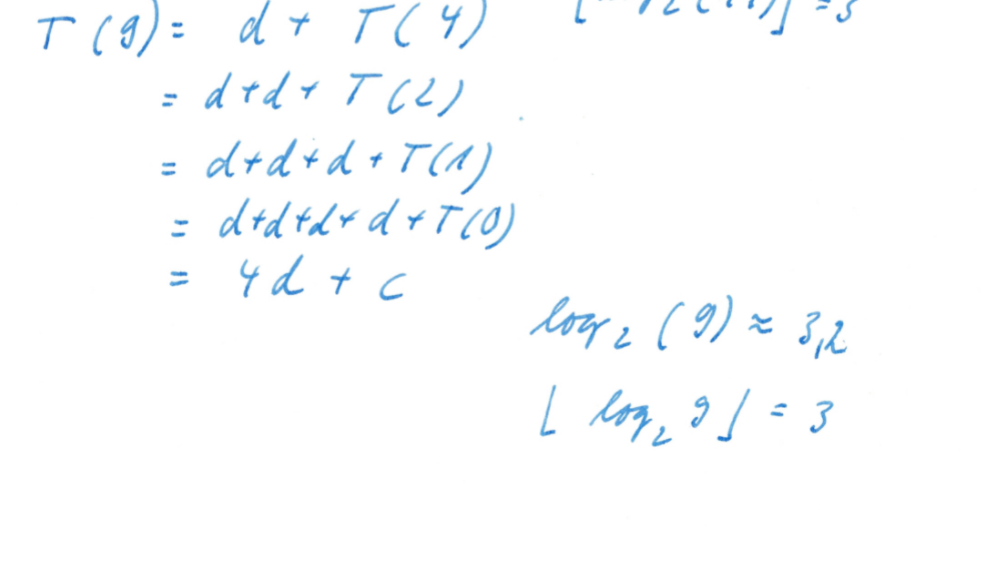 T(9) = d + T(4)
= d+d+ T(2)
= d+d+d+T(1)
= d+d+d+d+T(0)
= 4d + c
log₂(9) ≈ 3,2
⌊ log₂ 9 ⌋ = 3